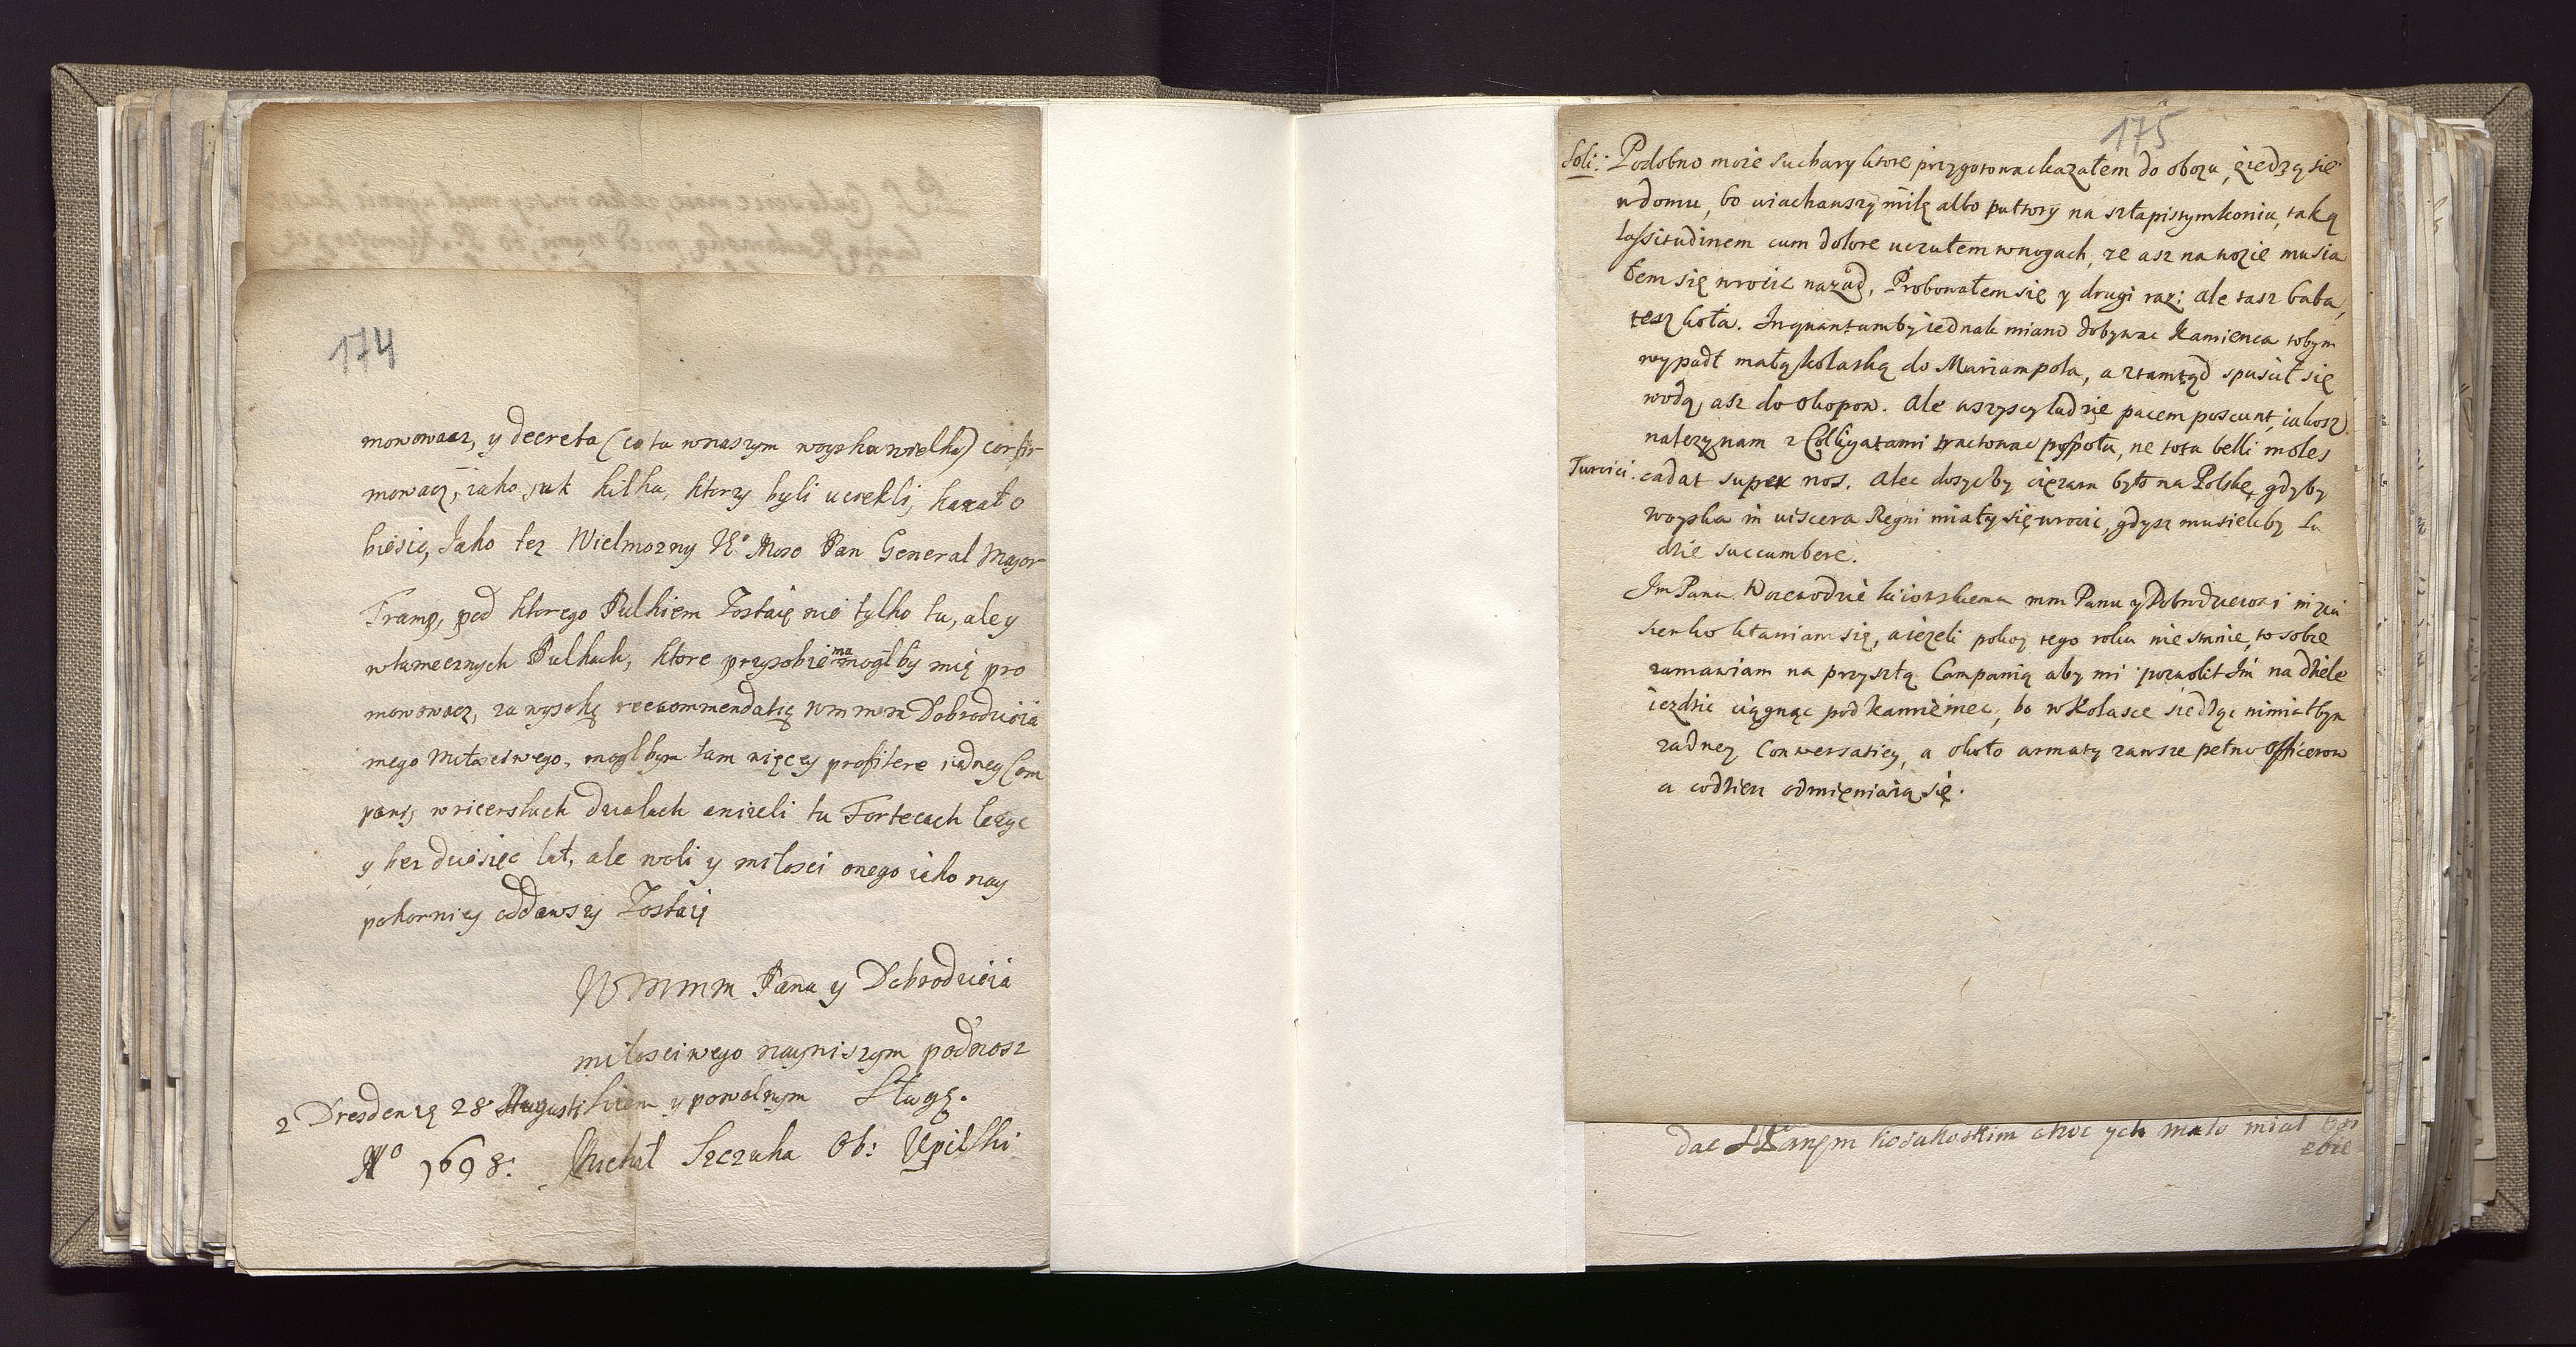 174
mowowacz, y decreta (co tu w naszym woysku wielka) confir
mowacz, iako iuk kilka, ktorzy byli uciekli, kazał o
biesic, Jako tez Wielmozny Pan General Major
Tramp, pod ktorego Pulkiem Zostaię nie tylko tu, ale y
w tamecznych Pulkach, ktore przy sobie ma mogł by mię pro
mowowacz, za wysoką reccommendatią Wm mem Dobrodzieia
mego Miłosciwego, mogl bym tam więcey profitere iedney Com
panij w ricerskich dzialach aniżeli tu Fortecach leżyc
y bez dziesięc lat, ale woli y miłosci onego iako nay
pokorniey oddawszy Zostaię
W M M m Pana y Dobrodzieia
miłosciwego nayniszym podnosz
z Drezdenią 28 Augusti kiem y powolnym Sługą.
Aº 1698. Michał Szczuka Ob: Upitski
175
Soli: Podobno moie suchary ktore przygotowac kazałem do obozu, ziedzą się
w domu, bo uiachawszy milę albo puttory na szłapistym koniu, taką
lassitudinem cum dolore uczułem w nogach, ze asz na wozie musia
łem się wrocic nazad, Probowałem się y drugi raz: ale tasz baba,
tesz koła. In quantum by iednak miano dobywac Kamienca tobym
wypadł małą kolaską do Mariampola, a ztamtąd spuscił się
wodą, asz do Okopow. Ale wszyscy ludzie pacem poscunt, iakosz
nalezy nam z Colligatami tractowac pospołu, ne tota belli moles
Turcici. cadat super nos. Alec dosyc by cięzaru było na Polskę, gdyby
woyska in viscera Regni miały się wrocic, gdysz musieliby Lu
dzie succumbere.
Jm Panu Woiewodzie kiiowskiemu mm Panu y Dobrodzieiowi niziu
sienko kłaniam się, a iezeli pokoy tego roku nie stanie, to sobie
zamawiam na przyszłą Campanią aby mi pozwolił Jm na dziele
iezdzic ciągnąc pod Kamieniec, bo w Kolasce siedząc nimiałbym
zadney Conversatiey, a około armaty zawsze pełno Officerow
a codzien odmięniaią się.
dac kosakoskim choc ych mało miał